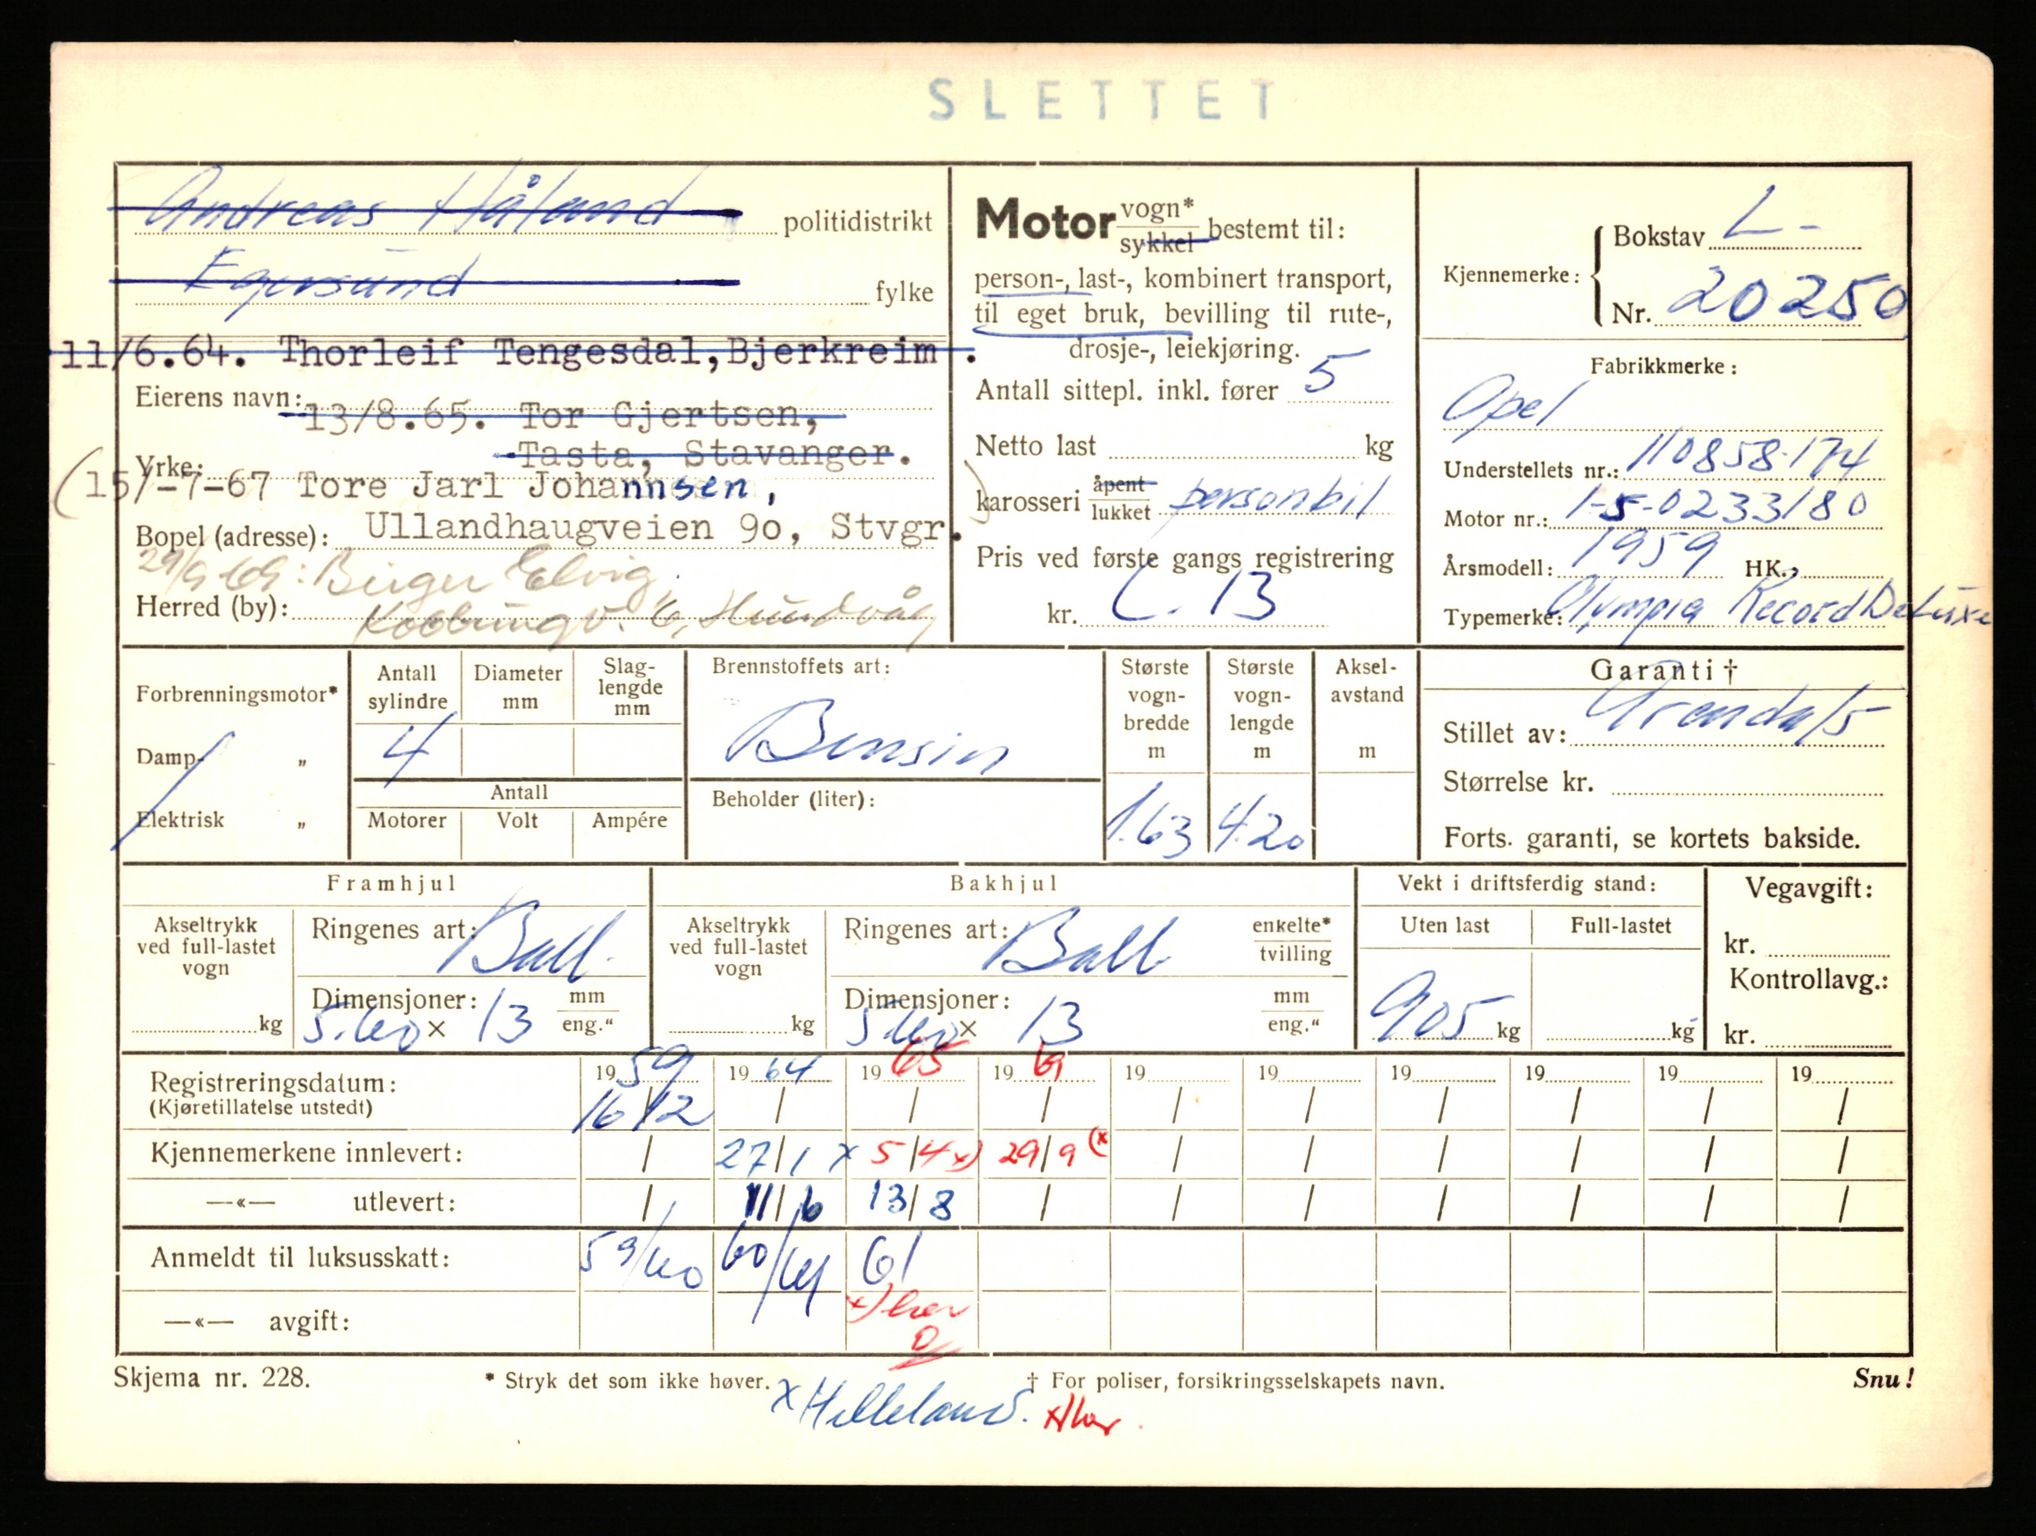 SLETTET
Andreas Håland politidistrikt
Egersund fylke
11/6.64. Thorleif Tengesdal, Bjerkreim.
Eierens navn:
13/8.65. Tor Gjertsen,
Tasta, Stavanger.
Yrke:
(15/-7-67 Tore Jarl Johannsen,
Bopel (adresse): Ullandhaugveien 90, Stvgr.
29/9-69: Birger Elvig,
Herred (by): v. 6, Hundvåg
Motor vogn* / sykkel bestemt til:
person-, last-, kombinert transport,
til eget bruk, bevilling til rute-,
drosje-, leiekjøring.
Antall sittepl. inkl. fører 5
Netto last kg
karosseri åpent / lukket personbil
Pris ved første gangs registrering
kr. C. 13
Kjennemerke: Bokstav L-
Nr. 20250
Fabrikkmerke:
Opel
Understellets nr.: 110858174
Motor nr.: 1-5-0233180
Årsmodell: 1959 HK.
Typemerke: Olympia Record De Luxe
Forbrenningsmotor*
Damp- „
Elektrisk „
Antall sylindre
4
Diameter mm
Slag-lengde mm
Antall
Motorer Volt Ampére
Brennstoffets art:
Bensin
Beholder (liter):
Største vogn-bredde m
1.63
Største vogn-lengde m
4.20
Aksel-avstand m
Garanti †
Stillet av: Arendals
Størrelse kr.
Forts. garanti, se kortets bakside.
Framhjul
Akseltrykk ved full-lastet vogn
kg
Ringenes art: Ball.
Dimensjoner: mm / eng."
5.60 x 13
Bakhjul
Akseltrykk ved full-lastet vogn
kg
Ringenes art: Ball. enkelte* / tvilling
Dimensjoner: mm / eng."
5.60 x 13
Vekt i driftsferdig stand:
Uten last Full-lastet
905 kg kg
Vegavgift:
kr.
Kontrollavg.:
kr.
1959 1964 1965 1969 19 19 19 19 19 19
Registreringsdatum:
(Kjøretillatelse utstedt) 16/12 / / / / / / / / /
Kjennemerkene innlevert: / 27/1 x 5/4 x) 29/9 (x / / / / / /
—«— utlevert: / 11/6 13/8 / / / / / / /
Anmeldt til luksusskatt: 59/60 60/61 61
x) her
—«— avgift:
Skjema nr. 228. * Stryk det som ikke høver. † For poliser, forsikringsselskapets navn. Snu!
x Helleland. x) her.